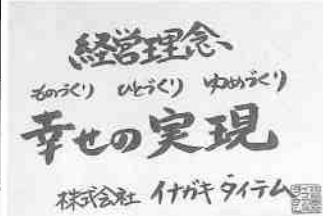 経営理念
ものづくり ひとづくり ゆめづくり
幸せの実現
株式会社 イナガキダイテム